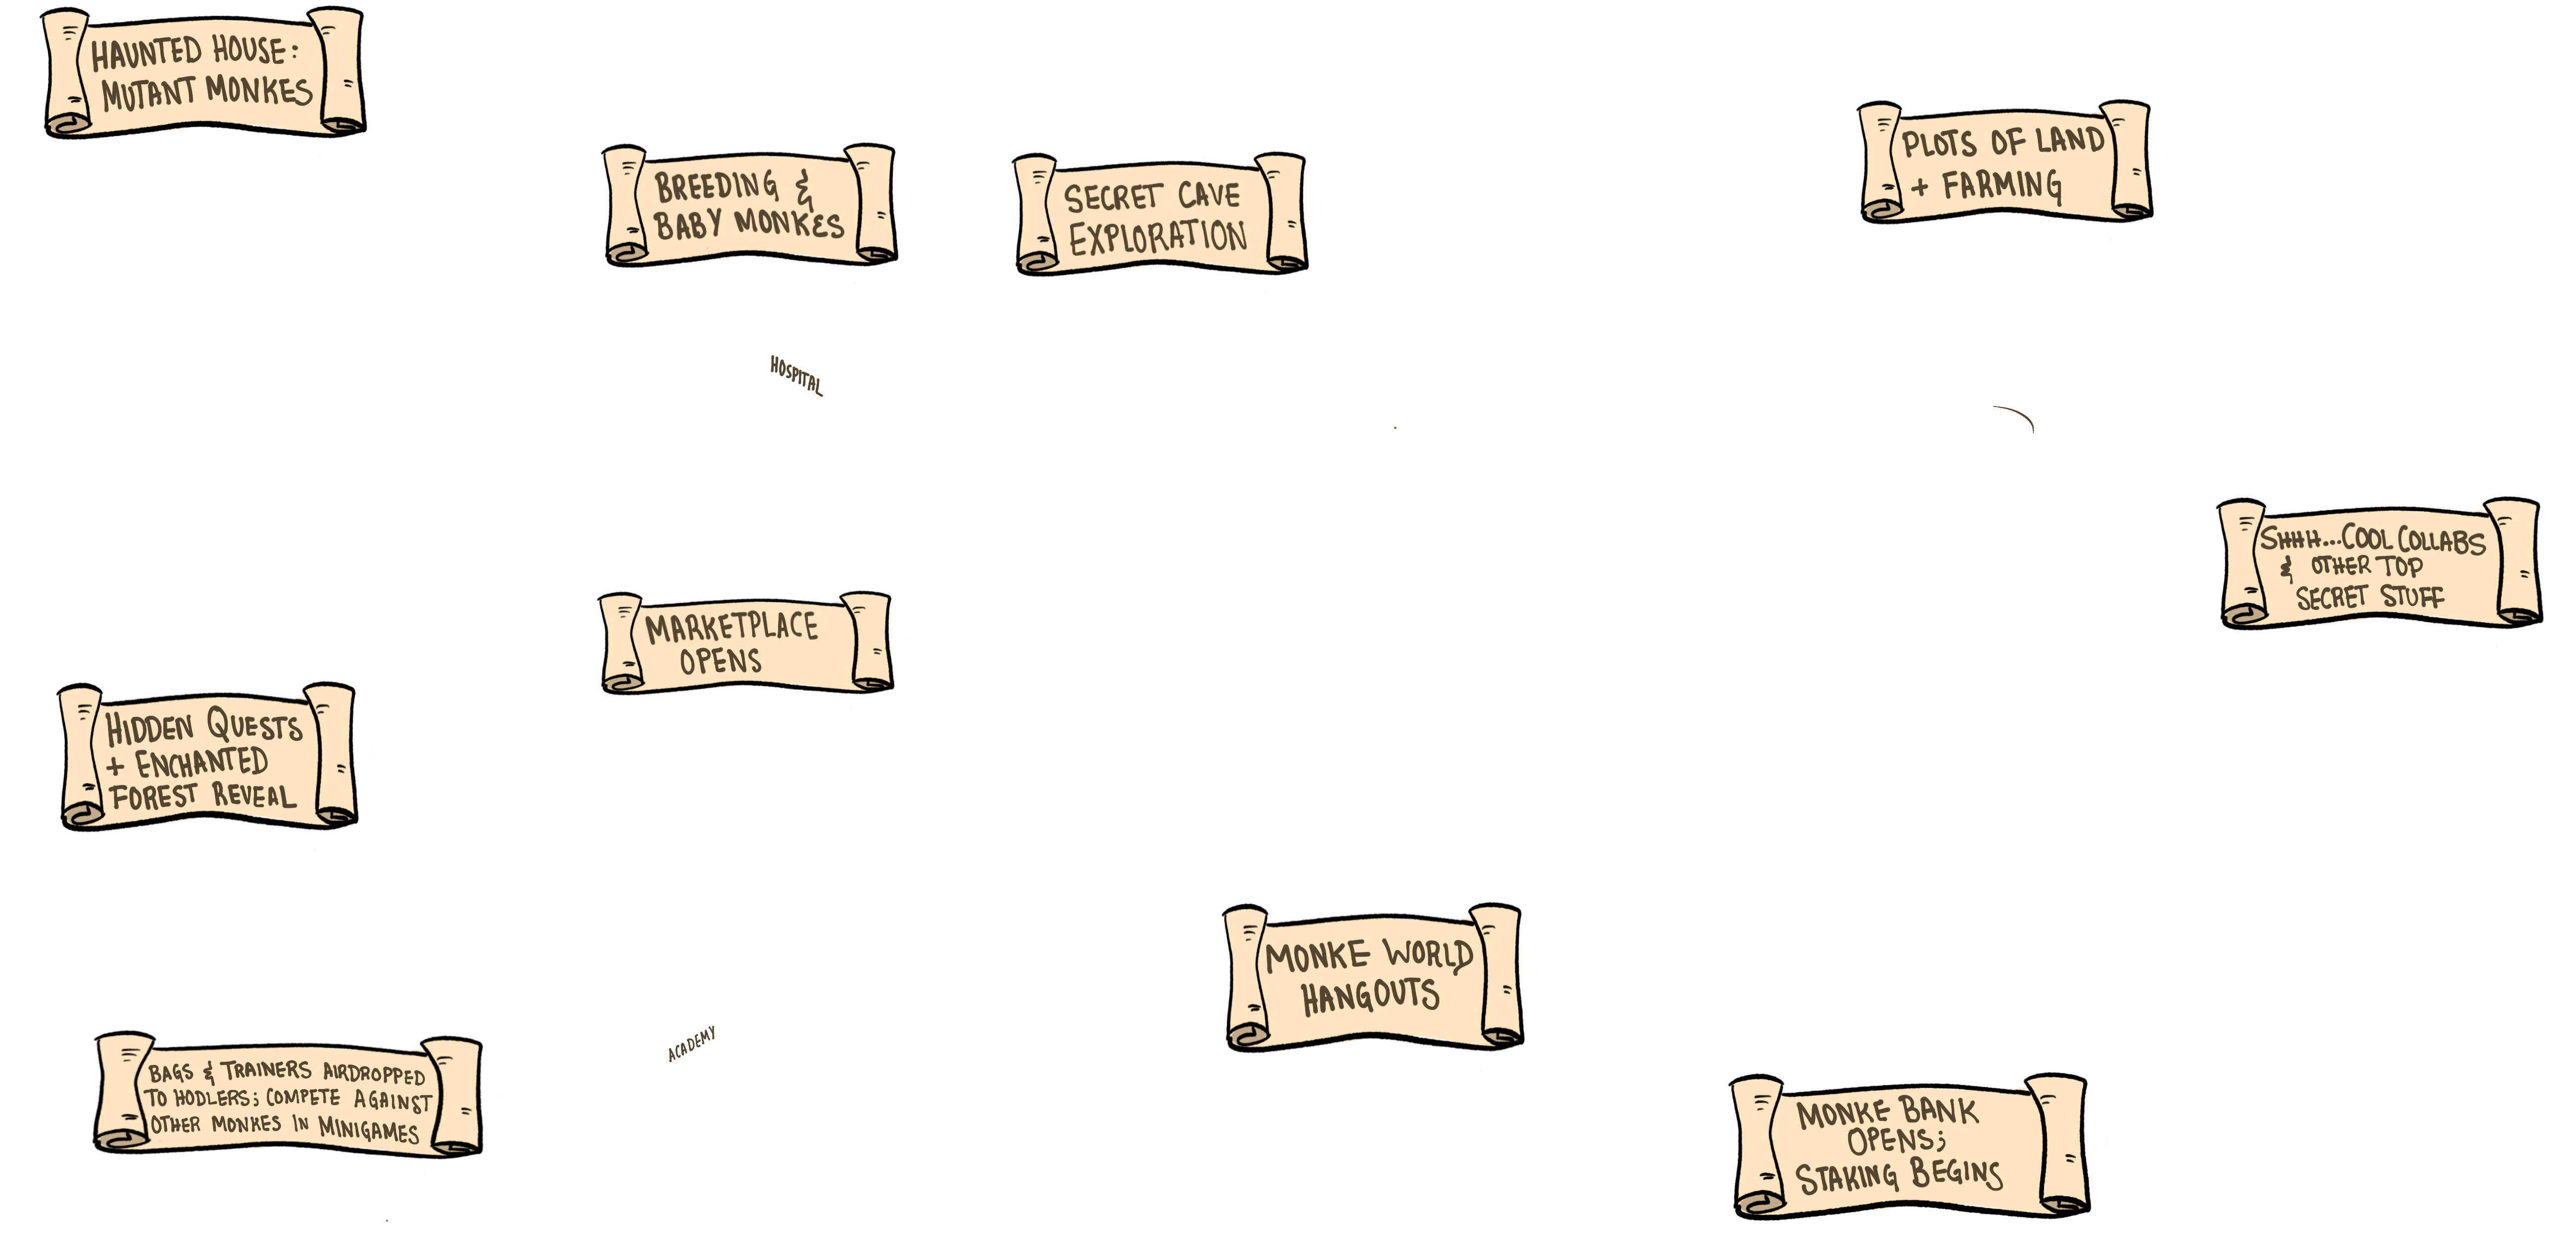 HAUNTED HOUSE:
MUTANT MONKES
BREEDING &
BABY MONKES
SECRET CAVE
EXPLORATION
PLOTS OF LAND
+ FARMING
HOSPITAL
SHHH...COOL COLLABS
& OTHER TOP
SECRET STUFF
MARKETPLACE
OPENS
HIDDEN QUESTS
+ ENCHANTED
FOREST REVEAL
MONKE WORLD
HANGOUTS
ACADEMY
BAGS & TRAINERS AIRDROPPED
TO HODLERS; COMPETE AGAINST
OTHER MONKES IN MINIGAMES
MONKE BANK
OPENS;
STAKING BEGINS